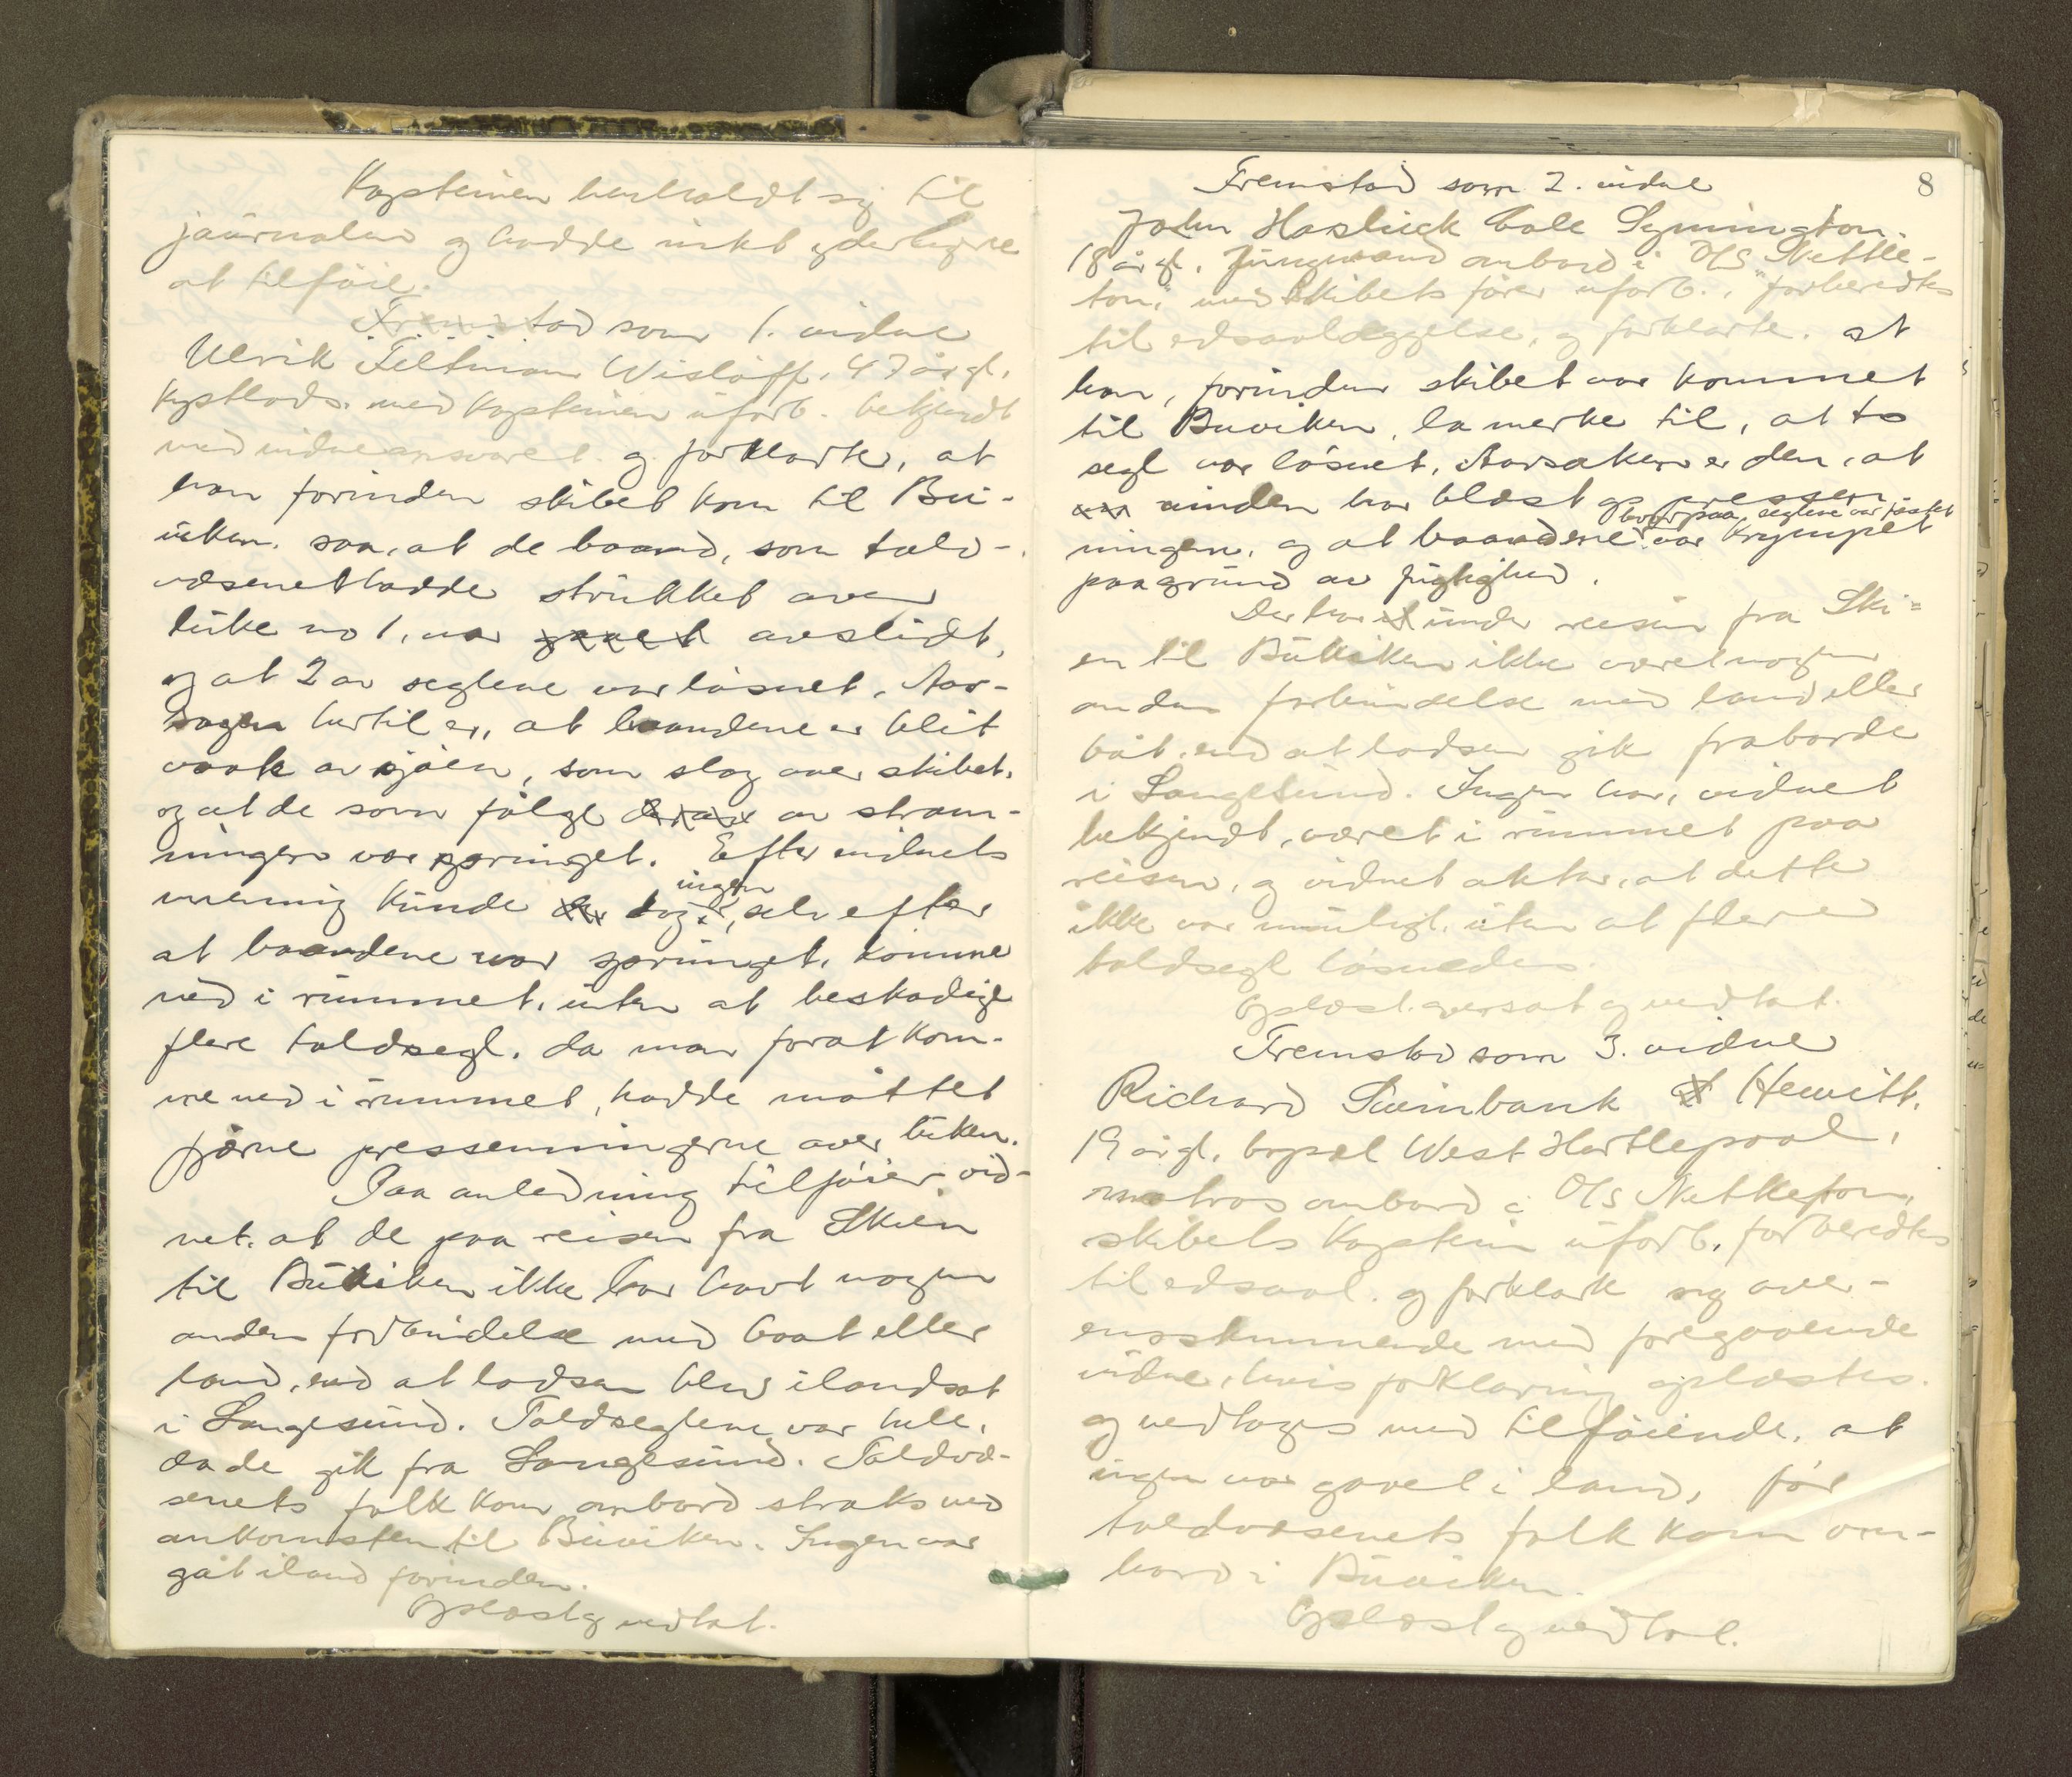 Kapteinen henholdt sig til
journalen og hadde intet yderligere
at tilføie.
Fremstod som 1. vidne
Ulrik Feltman Wisløff, 47 år gl.
kystlods. med kapteinen uforb. bekjendt
med vidneansvaret og forklarte, at
han forinden skibet kom til Bu-
viken, saa, at de baand, som told-
væsenet hadde strukket over
luke no 1, var gaaet avslidt,
og at 2 av seglene var løsnet. Aar-
sagen hertil er, at baandene er blit
vaate av sjøen, som slog over skibet,
og at de som følge derav av stram-
ningen var sprunget. Efter vidnets
mening kunde der dog ingen, selv efter
at baandene var sprunget, komme
ned i rummet, uten at beskadige
flere toldsegl, da man for at kom-
me ned i rummet, hadde måttet
fjærne pressenningerne over luken.
Paa anledning tilføier vid-
net, at de paa reisen fra Skien
til Buviken ikke har havt nogen
anden forbindelse med baat eller
land, end at lodsen blev ilandsat
i Langesund. Toldseglene var hele,
da de gik fra Langesund. Toldvæ-
senets folk kom ombord straks ved
ankomsten til Buviken. Ingen var
gåt iland forinden.
Oplæst og vedtat.
8
Fremstod som 2. vidne
John Hasluck Cole Symington.
18 år gl. Jungmand ombord i D/S "Nettle-
ton," med skibets fører uforb., forberedtes
til edsavlæggelse, og forklarte, at
han, forinden skibet var kommet
til Buviken, la merke til, at to
segl var løsnet. Aarsaken er den, at
vinden har blæst op pressen-
ningen, og at baandene hvorpaa seglene var fæstet var krympet
paa grund av fugtighed.
Der har under reisen fra Ski-
en til Buviken ikke været nogen
anden forbindelse med land eller
båt, end at lodsen gik fraborde
i Langesund. Ingen har, vidnet
bekjendt, været i rummet paa
reisen, og vidnet akter, at dette
ikke var muligt, uten at flere
toldsegl løsnedes.
Oplæst, oversat og vedtat.
Fremstod som 3. vidne
Richard Swinbank Hewitt,
19 år gl. bopæl West Hartlepool,
matros ombord i D/S Nettleton,
skibets kaptein uforb, forberedtes
til edsavl. og forklarte sig over-
ensstemmende med foregaaende
vidne, hvis forklaring oplæstes
og vedtoges med tilføiende, at
ingen var gaaet i land, før
toldvæsenets folk kom om-
bord i Buviken.
Oplæst og vedtat.